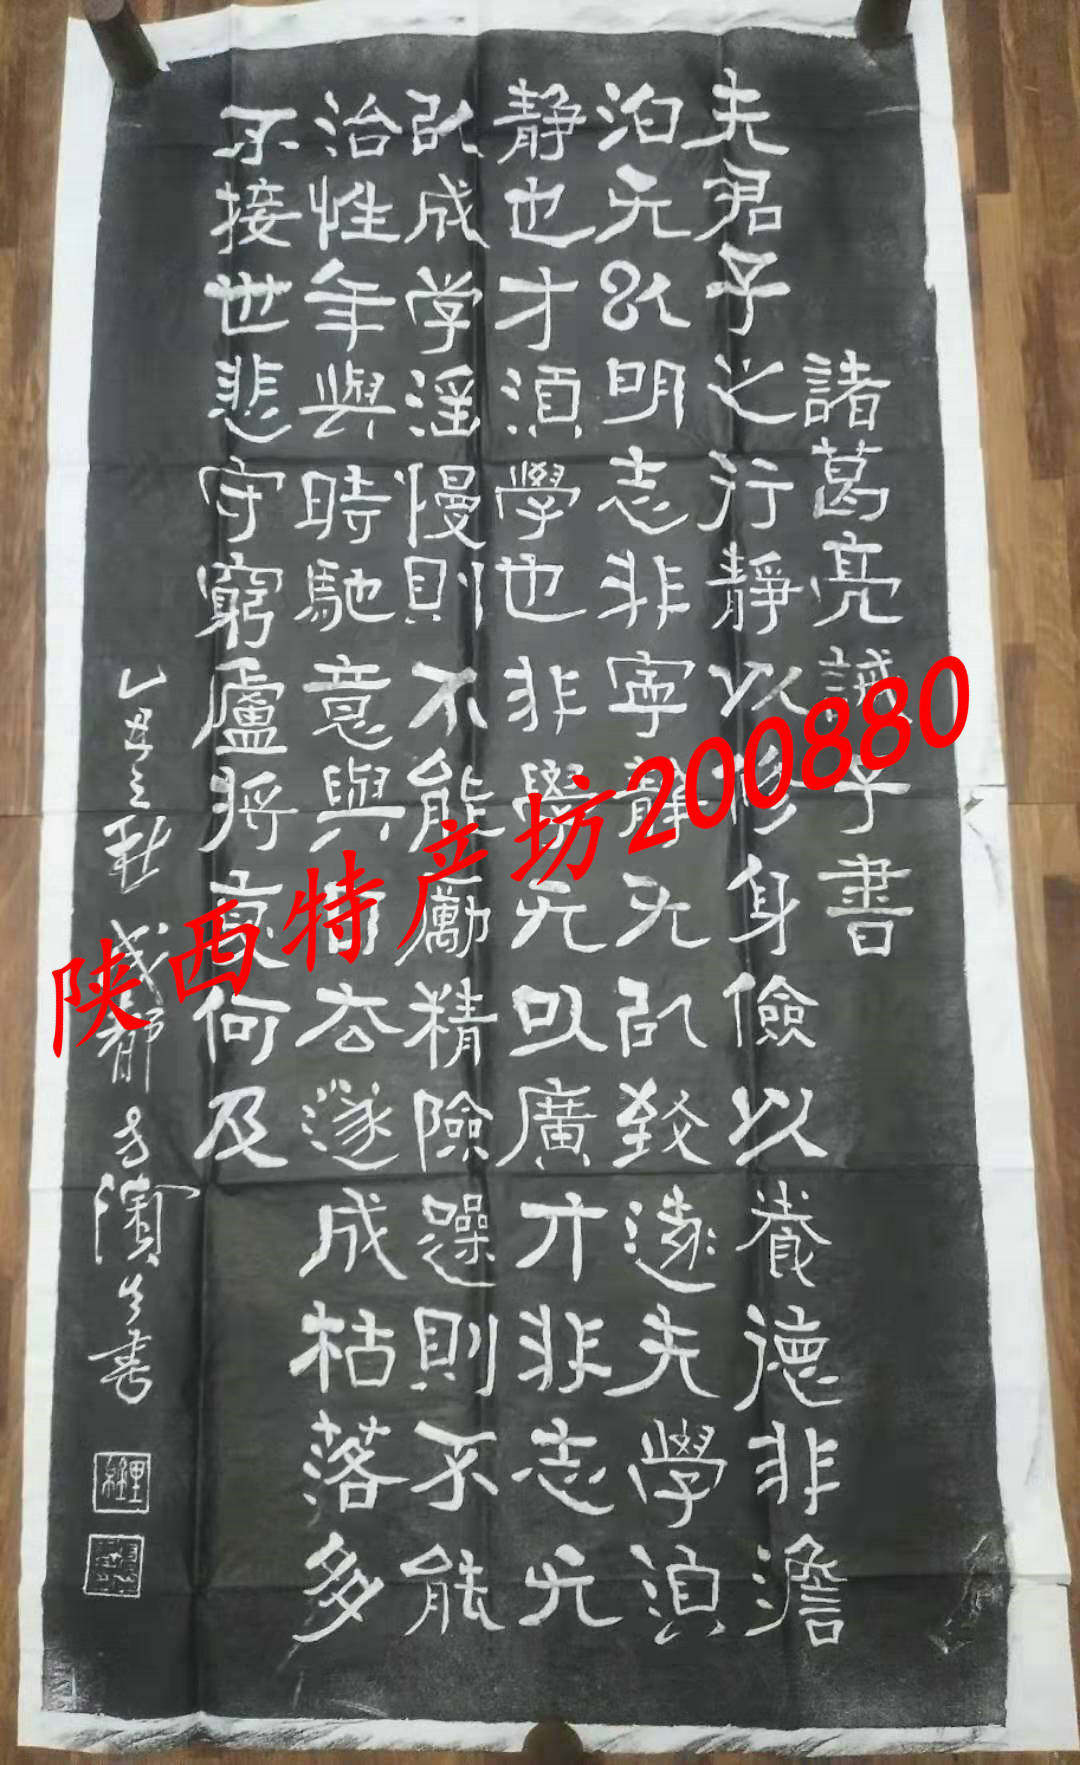 諸葛亮誡子書
夫君子之行靜以修身儉以養德非澹
泊无以明志非寧静无以致遠夫學須
静也才須學也非學无以廣才非志无
以成学淫慢則不能勵精險躁則不能
治性年與時馳意與日去遂成枯落多
不接世悲守窮廬将復何及
乙丑之秋成都方濱生書
陕西特产坊200880